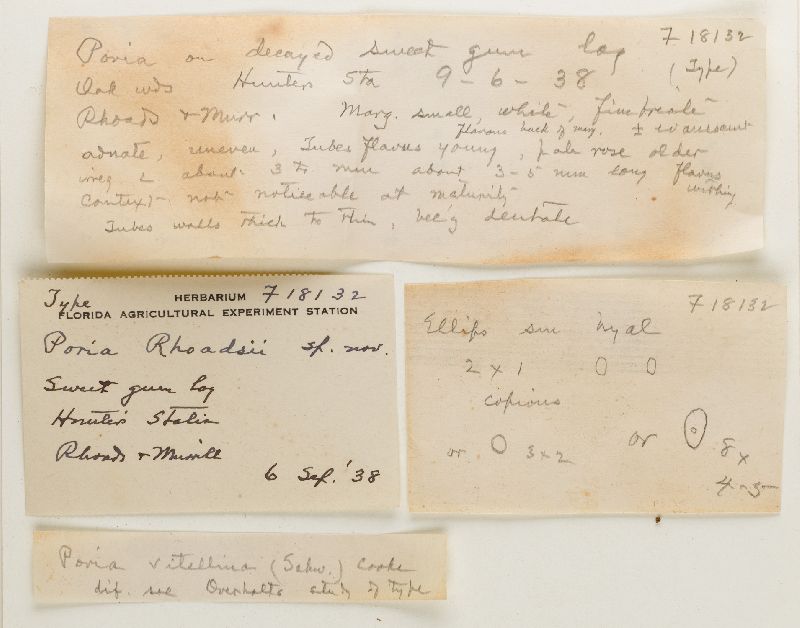 Poria on decayed sweet gum log F 18132
Oak wds Hunters Sta 9-6-38 (Type)
Rhoads & Murr. Marg. small, white, fimbriate
flavous back of marg. ± evanescent
adnate, uneven, Tubes flavus young, pale rose older
irreg 2 about 3 to mm about 3-5 mm long flavus
Context not noticeable at maturity
Tubes walls thick to thin, bec'g dentate
Type HERBARIUM F 18132
FLORIDA AGRICULTURAL EXPERIMENT STATION
Poria Rhoadsii sp. nov.
Sweet gum log
Hunter's Station
Rhoads & Murrill
6 Sep. '38
F 18132
Ellips sm hyal
2 x 1
copious
or 3 x 2 or 8 x
4-5
Poria vitellina (Schw.) Cooke
dif. see Overholts study of type